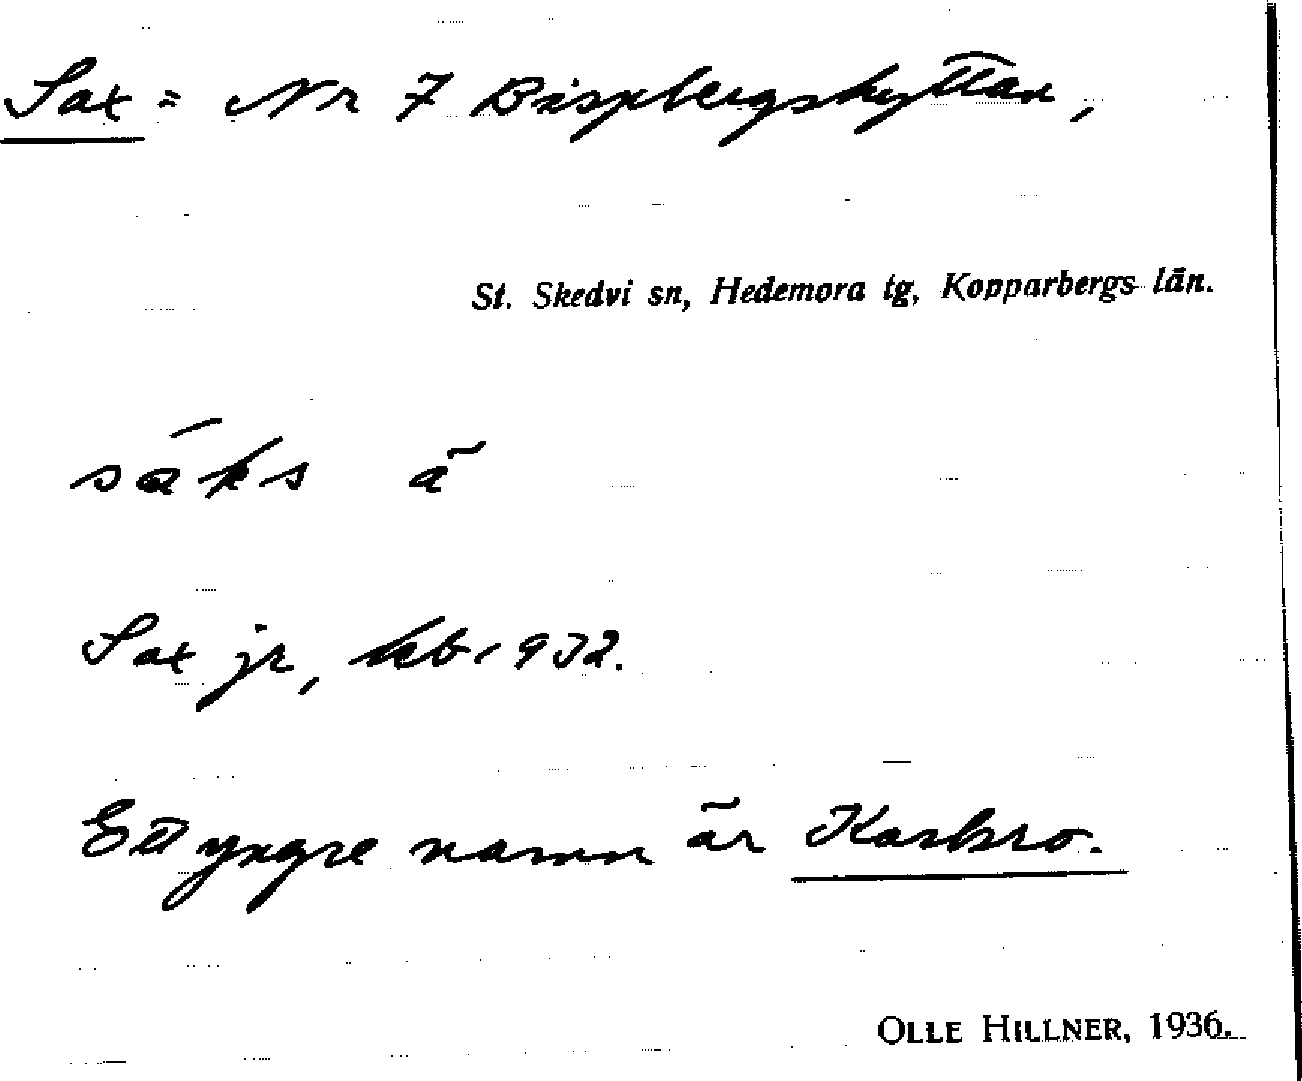 Sax = Nr 7 Bispbergshyttan,
St. Skedvi sn, Hedemora tg, Kopparbergs län.
säks ä
Sax jr, kb 1932.
Ett yngre namn är Karlsro.
OLLE HILLNER, 1936.